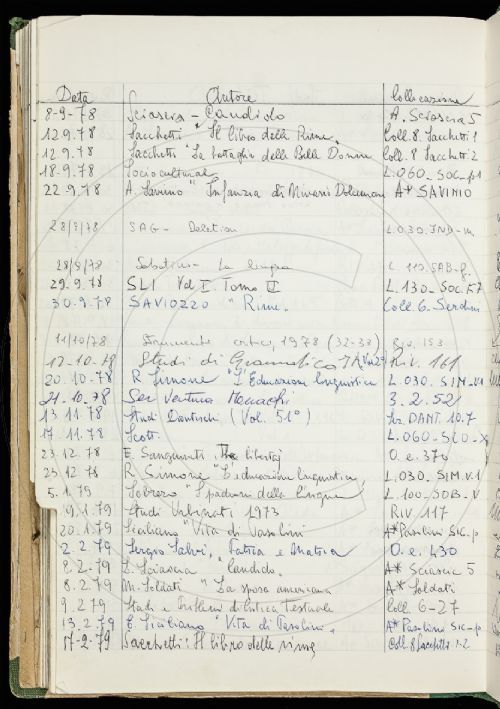 Data Autore Collocazione
8-9-78 Sciascia - Candido A. Sciascia 5
12 9.78 Sacchetti "Il libro delle Rime" Coll. 8. Sacchetti 1
12 9.78 Sacchetti "La battaglia delle Belle Donne Coll. 8 Sacchetti 2
18.9.78 Socioculturale L.060-SOC-p1
22 9.78 A. Savinio "Infanzia di Nivasio Dolcemare A* SAVINIO
28/9/78 SAG- L.030.IND-m
28/9/78 Sabatini- La lingua L. 110.SAB-
29.9.78 SLI Vol I. Tomo II L.130-SOC.
30.9.78 SAVIOZZO "Rime. Coll. 6.
11/10/78 critica, 1978 (32-33) Riv. 153
17-10-78 Studi di Grammatica IT. Riv. 161
20.10.78 R Simone "L'Educazione linguistica L.030.SIM-V1
21.10.78 Ser Ventura Monachi 3.2.521
13 11 78 Studi Danteschi (Vol. 51°) DANT. 10.7
17.11.78 Scott. L.060-SCO-
23.12.78 E. Sanguineti libertà O.e. 370
23 12 78 R Simone "L'educazione linguistica L.030.SIM.V.1
5.1.79 Sobrero "I padroni della lingua L.100-SOB.V
19.1.79 Studi Urbinati 1973 RIV 117
20.1.79 Siciliano "Vita di Pasolini A* Pasolini SIC-p
2.2.79 Sergio Salvi, Patria e Matria O.e.430
8.2-79 L. Sciascia "Candido. A* Sciascia 5
8.2.79 M. Soldati "La sposa americana A* Soldati
9.2 79 Studi e Problemi di Critica Testuale Coll 6-27
13.2.79 E. Siciliano "Vita di Pasolini" A* Pasolini SIC-p
17-2-79 Sacchetti: Il libro delle rime Coll. 8 Sacchetti 1.2